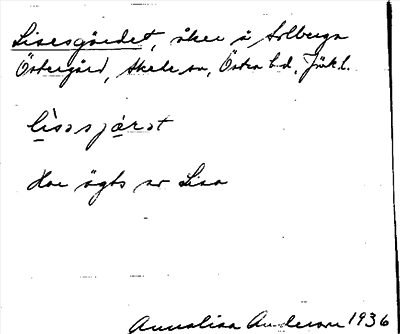 Lisesgärdet, åker å Solberga
Östergård, Askeby sn, Östra hd, Jönk. l.
lisəsjärət
Har ägts av Lisa
Annalisa Anderson 1936